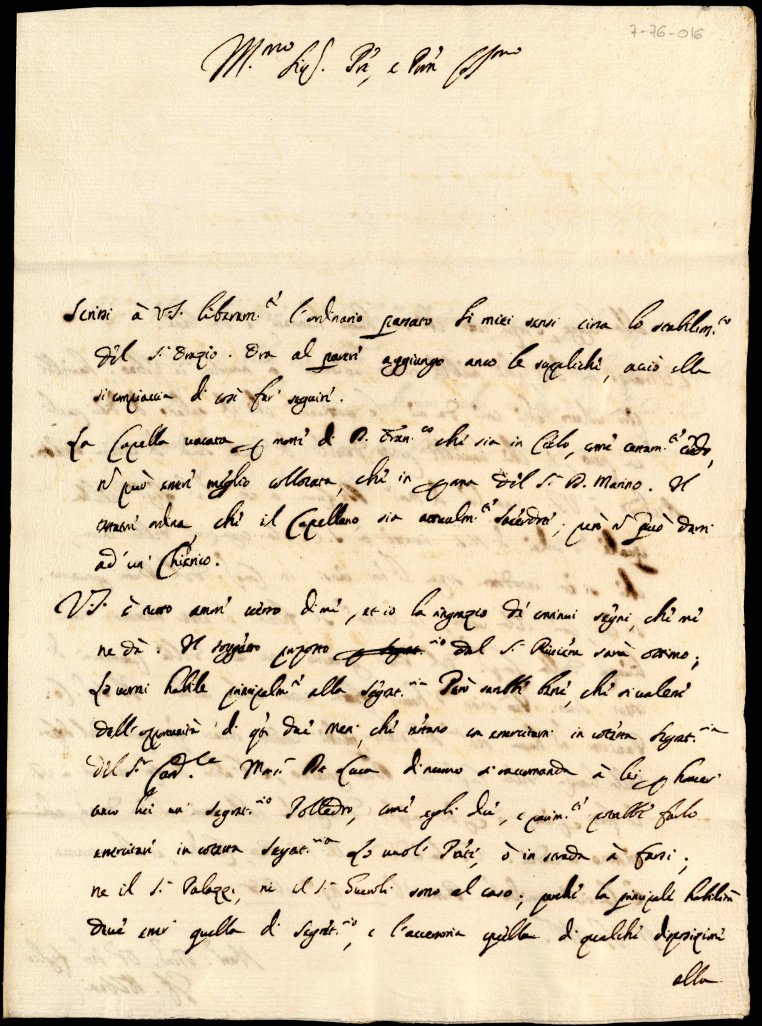 7-76-016
M.mo Sig.r Prè, e Pnē
Scrissi à V.S. liberam.tè l'ordinario passato li miei sensi circa lo stabilim.to
dèl S.r Orazio. Ora al parerè aggiungo anco le supplichè, acciò ella
si compiaccia di così far seguirè.
La Capella vacata p mortè di D. Fran.co chè sia in Cielo, comè certam.tè crèdo,
nō può esserè mèglio collocata, chè in psona dèl S.r D. Marino. Il
ordina chè il Capellano sia attualm.tè Sacèrdotè; però nō può darsi
ad un' Chièrico.
V.S. è tutto amorè vèrso di mè, et io la ringrazio dè continui sègni, chè mè
ne dà. Il soggètto proposto dal S.r Rivièra sarà ottimo;
Lo vorrei habile principalm.tè alla Sègrèt.ria Però sarebbè benè, chè si valessè
dell'opportunità di qsti duè mesi, chè rèstano con esercitarsi in cotèsta Segret.ria
dèl S.r Card.le Mons.r De Luca di nuovo si raccomanda à lei p haver
anco lui un' Segret.rio Pollèdro, comè egli dicè, e parim.tè potrebbè farlo
esercitarè in cotesta Segret.ria Lo vuolè Prètè, ò in strada à farsi;
ne il S.r Palazzi, nè il S.r sono al caso; perchè la principalè habilità
dèvè esser quella di Sègrèt.rio, e l'accessoria quèlla di qualchè disposizionè
alla